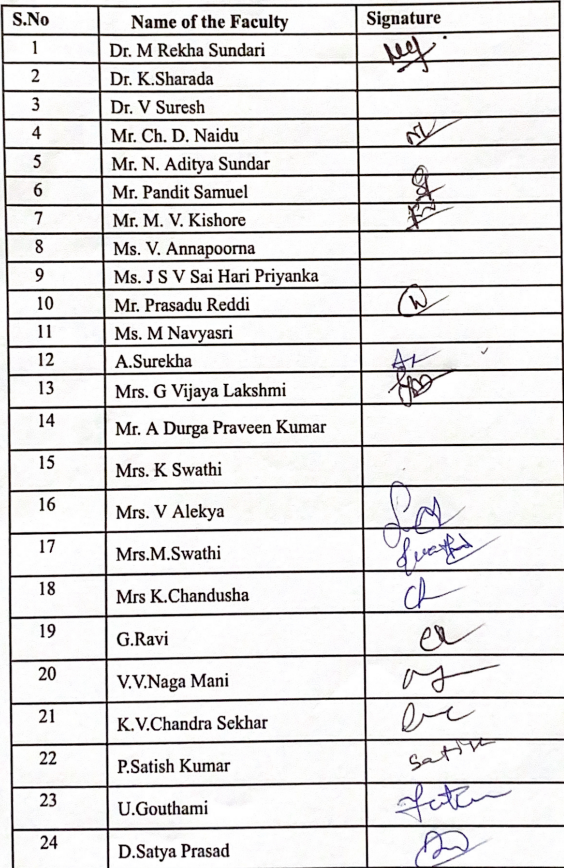 S.No Name of the Faculty Signature
1 Dr. M Rekha Sundari
2 Dr. K.Sharada
3 Dr. V Suresh
4 Mr. Ch. D. Naidu
5 Mr. N. Aditya Sundar
6 Mr. Pandit Samuel
7 Mr. M. V. Kishore
8 Ms. V. Annapoorna
9 Ms. J S V Sai Hari Priyanka
10 Mr. Prasadu Reddi
11 Ms. M Navyasri
12 A.Surekha
13 Mrs. G Vijaya Lakshmi
14 Mr. A Durga Praveen Kumar
15 Mrs. K Swathi
16 Mrs. V Alekya
17 Mrs.M.Swathi
18 Mrs K.Chandusha
19 G.Ravi
20 V.V.Naga Mani
21 K.V.Chandra Sekhar
22 P.Satish Kumar Satish
23 U.Gouthami
24 D.Satya Prasad